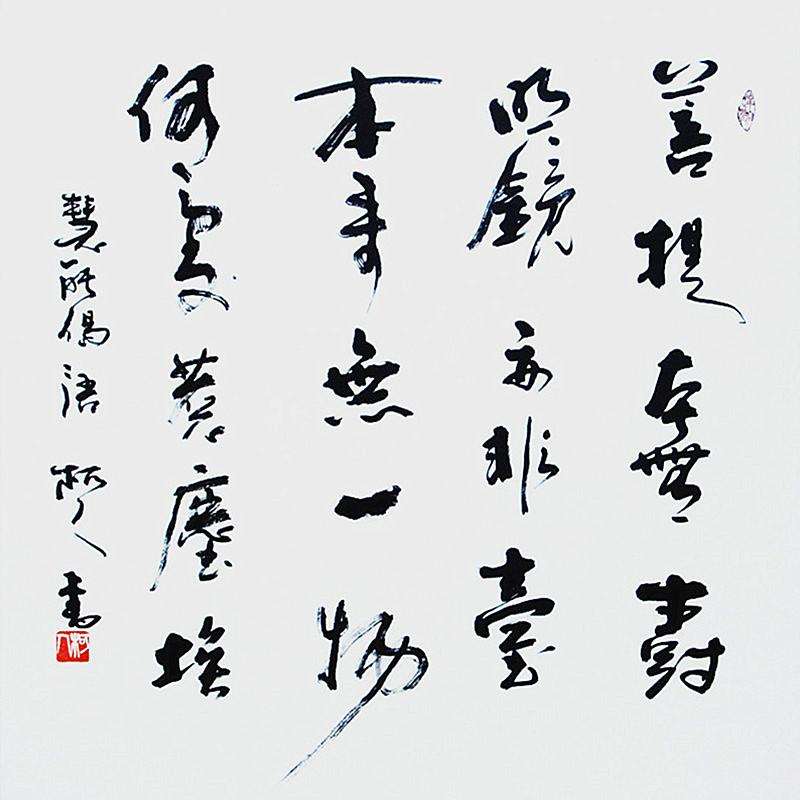 菩提本無樹
明鏡亦非臺
本來無一物
何處惹塵埃
慧能偈語 柯人書
柯人